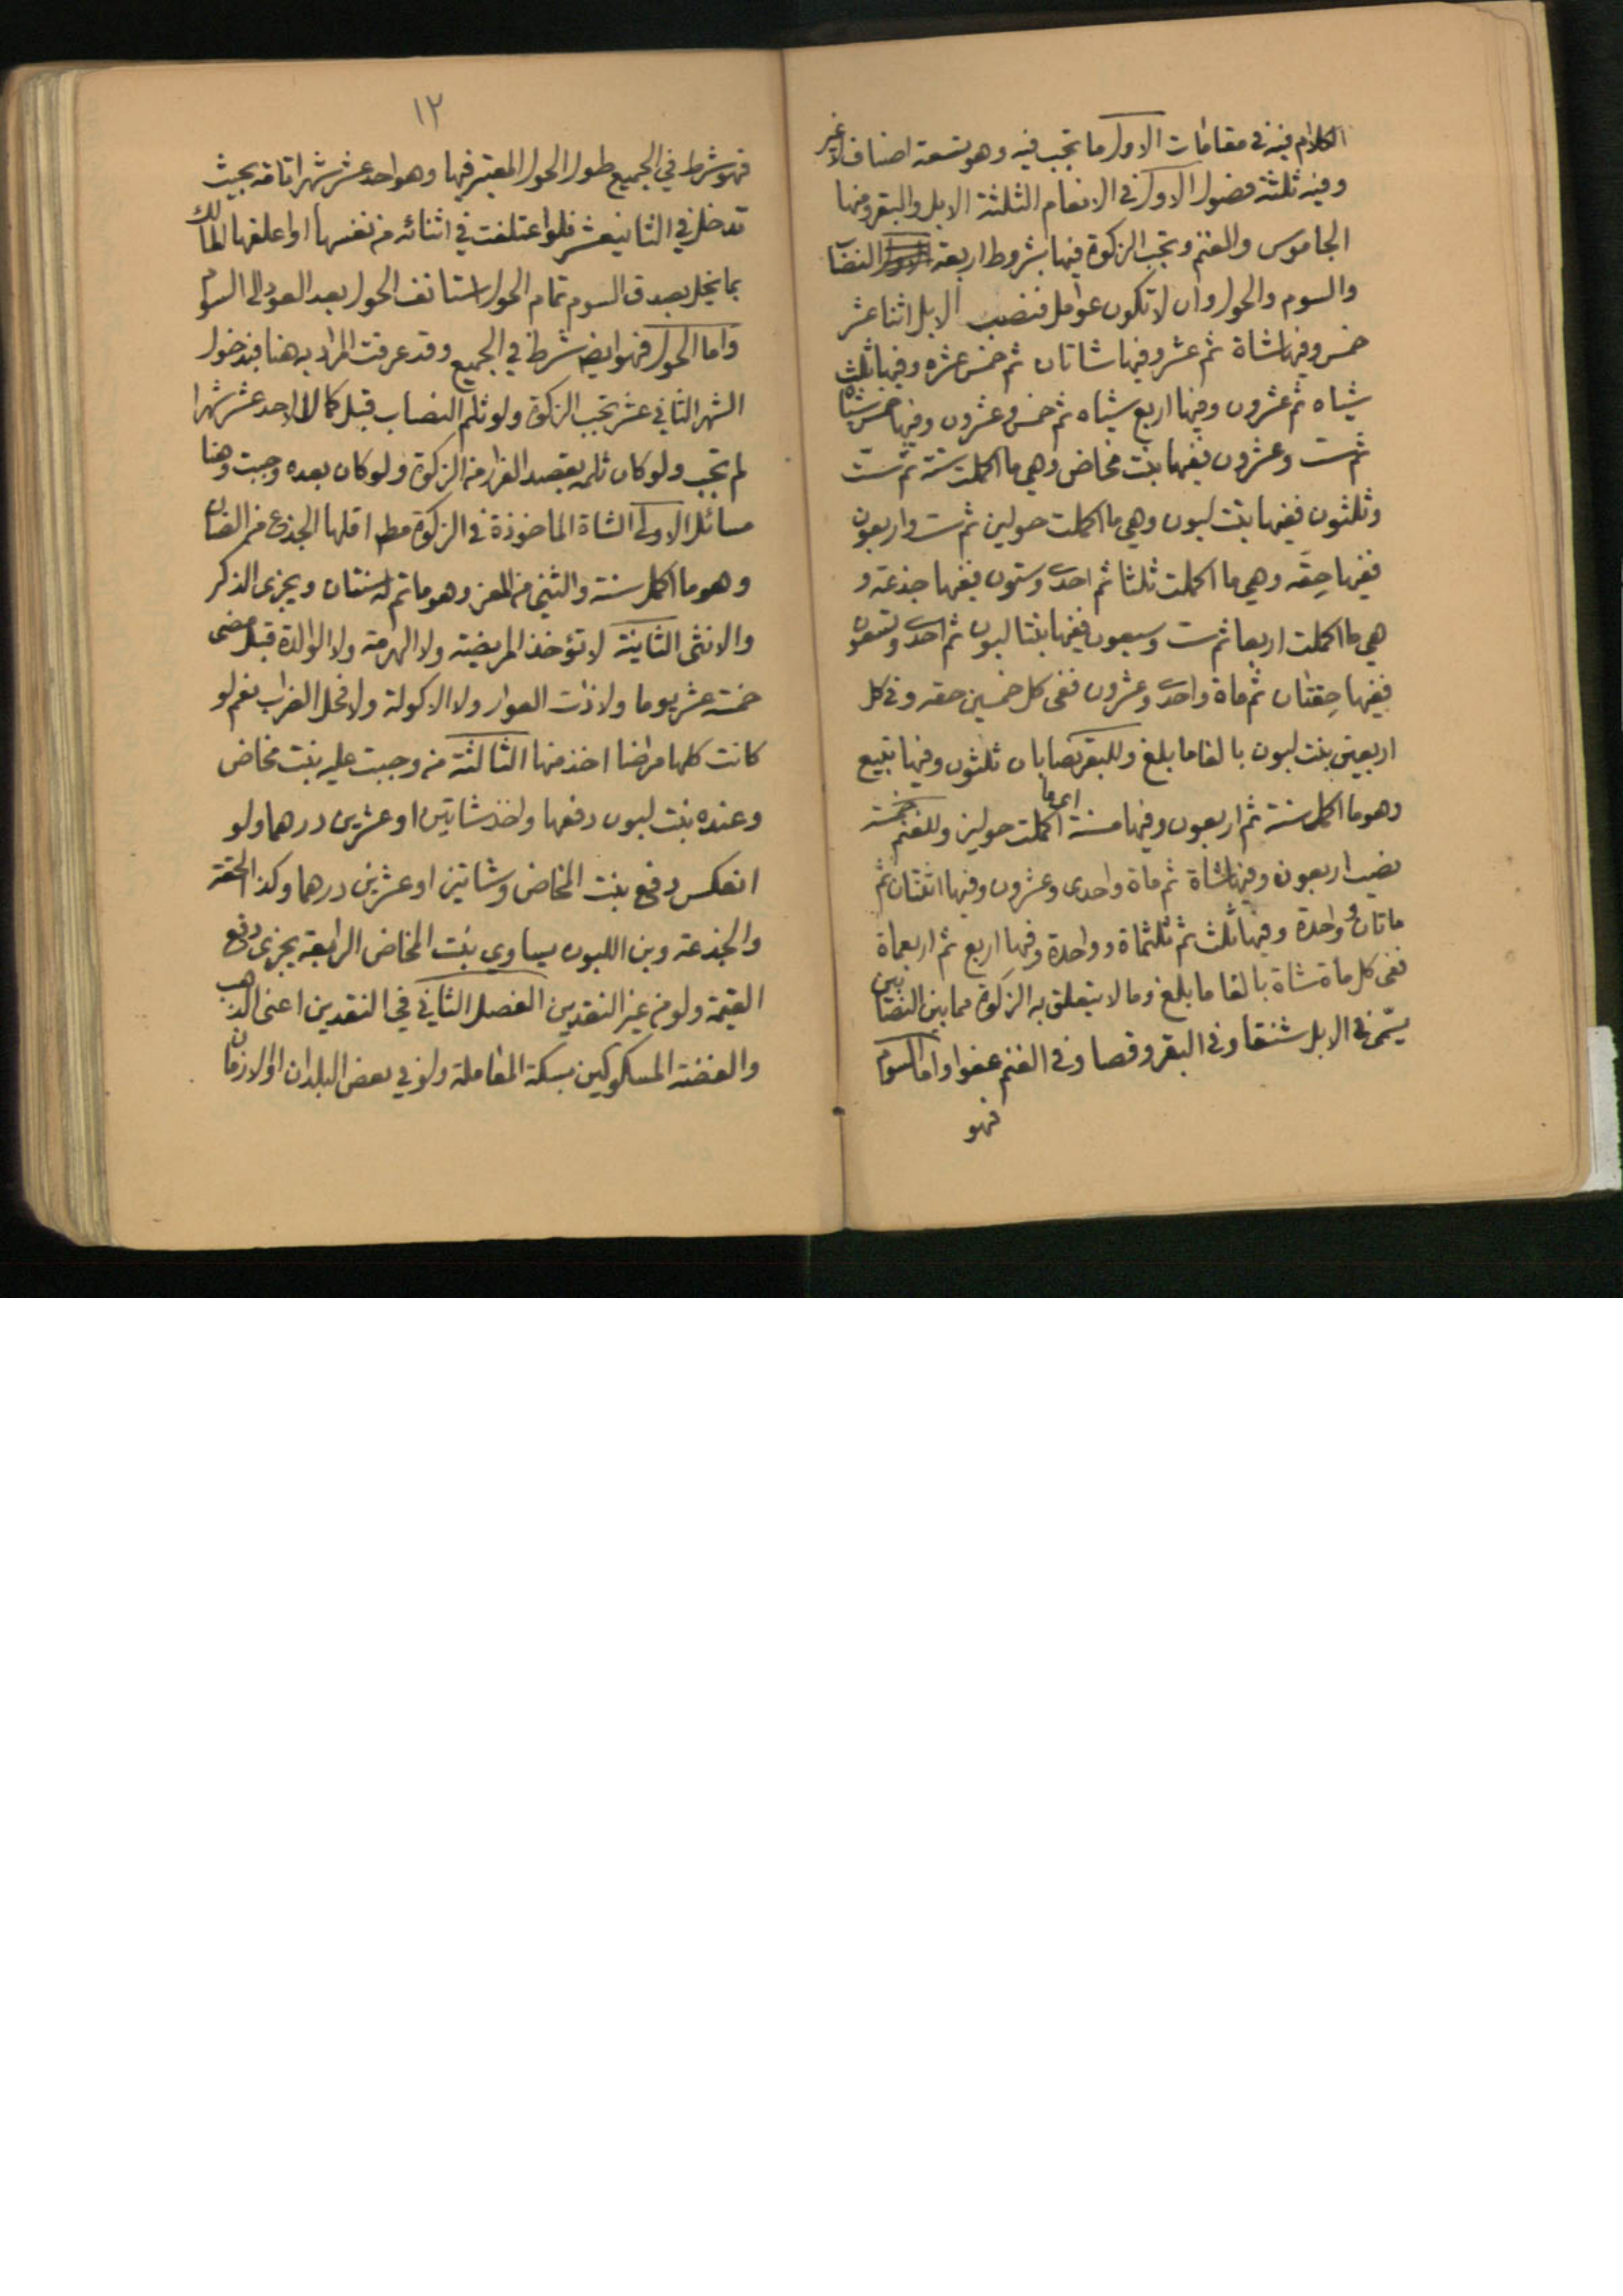 الكلام فيه في مقامات الاول ما تجب فيه وهو تسعة اصناف لا غير
وفيه ثلثة فصول الاول في الانعام الثلثة الابل والبقر ومنها
الجاموس والغنم وتجب الزكوة فيها بشروط اربعة النصاب
والسوم والحول وان لا تكون عوامل فنصب الابل اثنا عشر
خمس وفيها شاة ثم عشر وفيها شاتان ثم خمس عشرة وفيها ثلث
شياه ثم عشرون وفيها اربع شياه ثم خمس وعشرون وفيها خمس شياه
ثم ست وعشرون ففيها بنت مخاض وهي ما اكملت سنة ثم ست
وثلثون ففيها بنت لبون وهي ما اكملت حولين ثم ست واربعون
ففيها حِقّه وهي ما اكملت ثلثا ثم احدى وستون ففيها جذعة و
هي ما اكملت اربعا ثم ست وسبعون ففيها بنتا لبون ثم احدى وتسعون
ففيها حِقتان ثم ماة واحدى وعشرون ففي كل خمسين حقه وفي كل
اربعين بنت لبون بالغا ما بلغ وللبقر نصابان ثلثون وفيها تبيع
وهو ما اكمل سنة ثم اربعون وفيها مسنة اى ما اكملت حولين وللغنم خمسة
نصب اربعون وفيها شاة ثم ماة واحدى وعشرون وفيها اثنتان ثم
ماتان وواحدة وفيها ثلث ثم ثلثماة وواحدة وفيها اربع ثم اربعماة
ففي كل ماة شاة بالغا ما بلغ وما لا يتعلق به الزكوة مما بين النصابين
يسمى في الابل شنقا وفي البقر وقصا وفي الغنم عفوا واما السوم
فهو
١٢
فهو شرط في الجميع طول الحول المعتبر فيها وهو احد عشر شهرا تامة بحيث
تدخل في الثاني عشر فلو اعتلفت في اثنائه من نفسها او اعلفها المالك
بما يخل بصدق السوم تمام الحول استانف الحول بعد العود الى السوم
واما الحول فهو ايضا شرط في الجميع وقد عرفت المراد به هنا فبدخول
الشهر الثاني عشر تجب الزكوة ولو ثلم النصاب قبل كمال الاحد عشر شهرا
لم تجب ولو كان ثلمه بقصد الفرار من الزكوة ولو كان بعده وجبت وهنا
مسائل الاولى الشاة الماخوذة في الزكوة مطـ اقلها الجذع من الضان
وهو ما اكمل سنة والثني من المعز وهو ما تم له سنتان ويجزى الذكر
والانثى الثانية لا تؤخذ المريضة ولا الهرمة ولا الوالدة قبل مضى
خمسة عشر يوما ولا ذات العوار ولا الاكولة ولا فحل الضراب نعم لو
كانت كلها مراضا اخذ منها الثالثة من وجبت عليه بنت مخاض
وعنده بنت لبون دفعها واخذ شاتين او عشرين درهما ولو
انعكس دفع بنت المخاض وشاتين او عشرين درهما وكذا الحقة
والجذعة وبن اللبون يساوي بنت المخاض الرابعة يجزى دفع
القيمة ولو من غير النقدين الفصل الثاني في النقدين اعنى الذهب
والفضة المسكوكين بسكة المعاملة ولو في بعض البلدان او الازمان